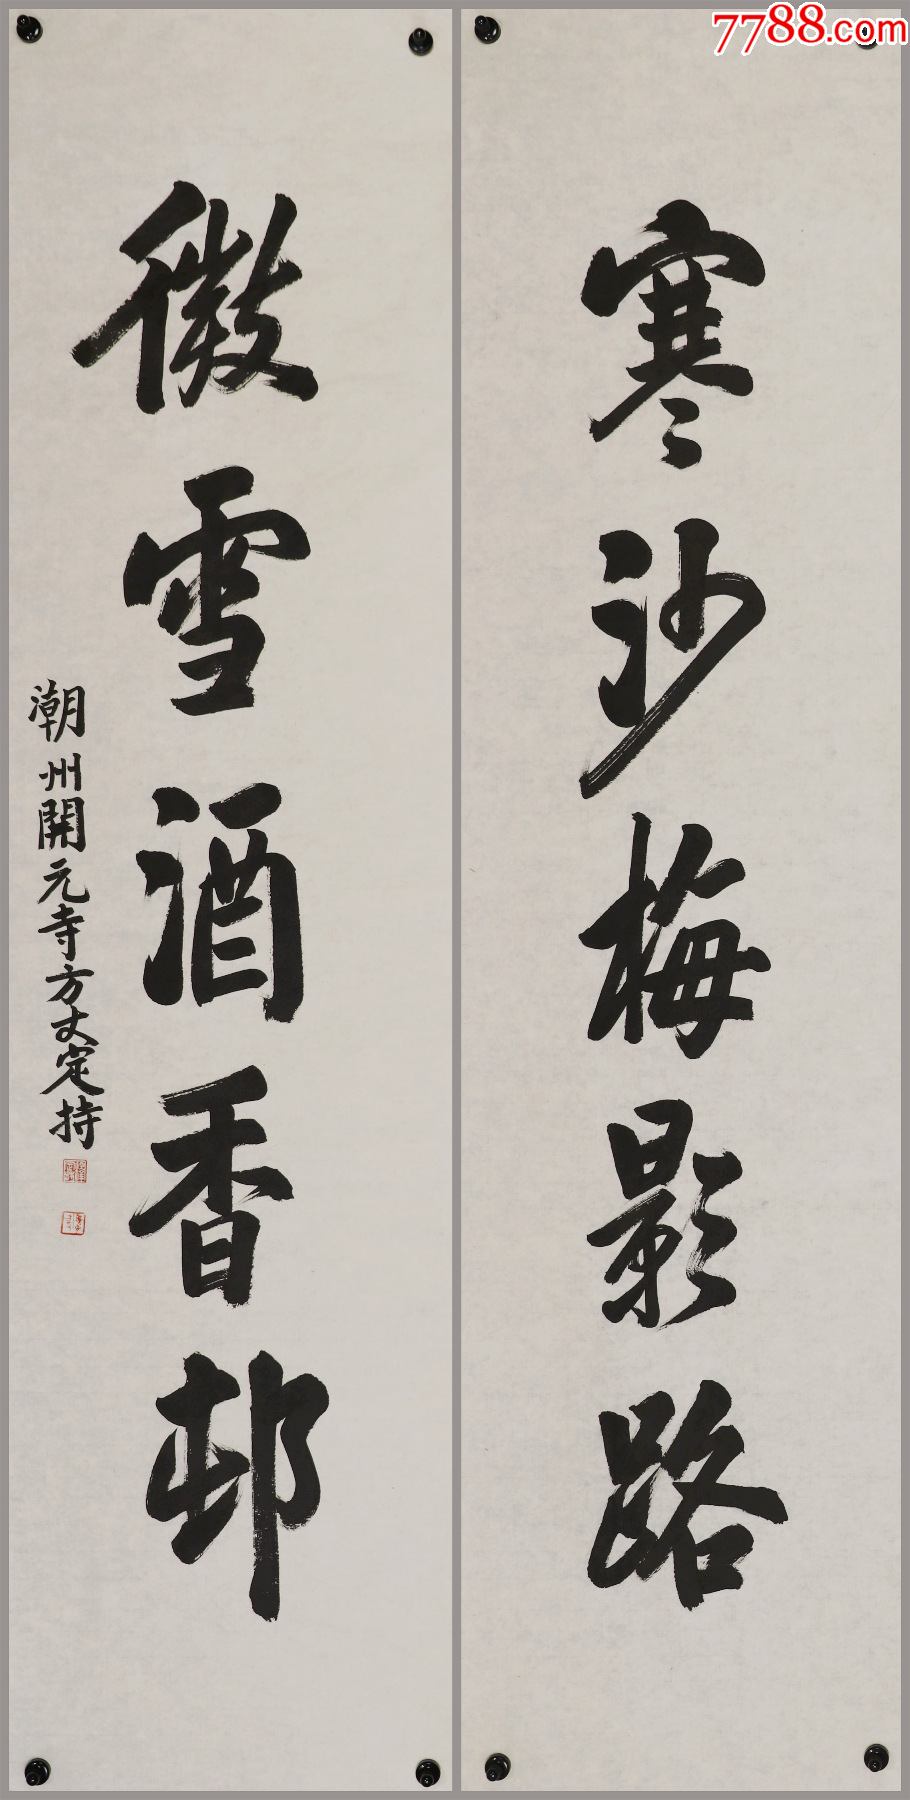 7788.com
寒沙梅影路
微雪酒香邨
潮州開元寺方丈定持